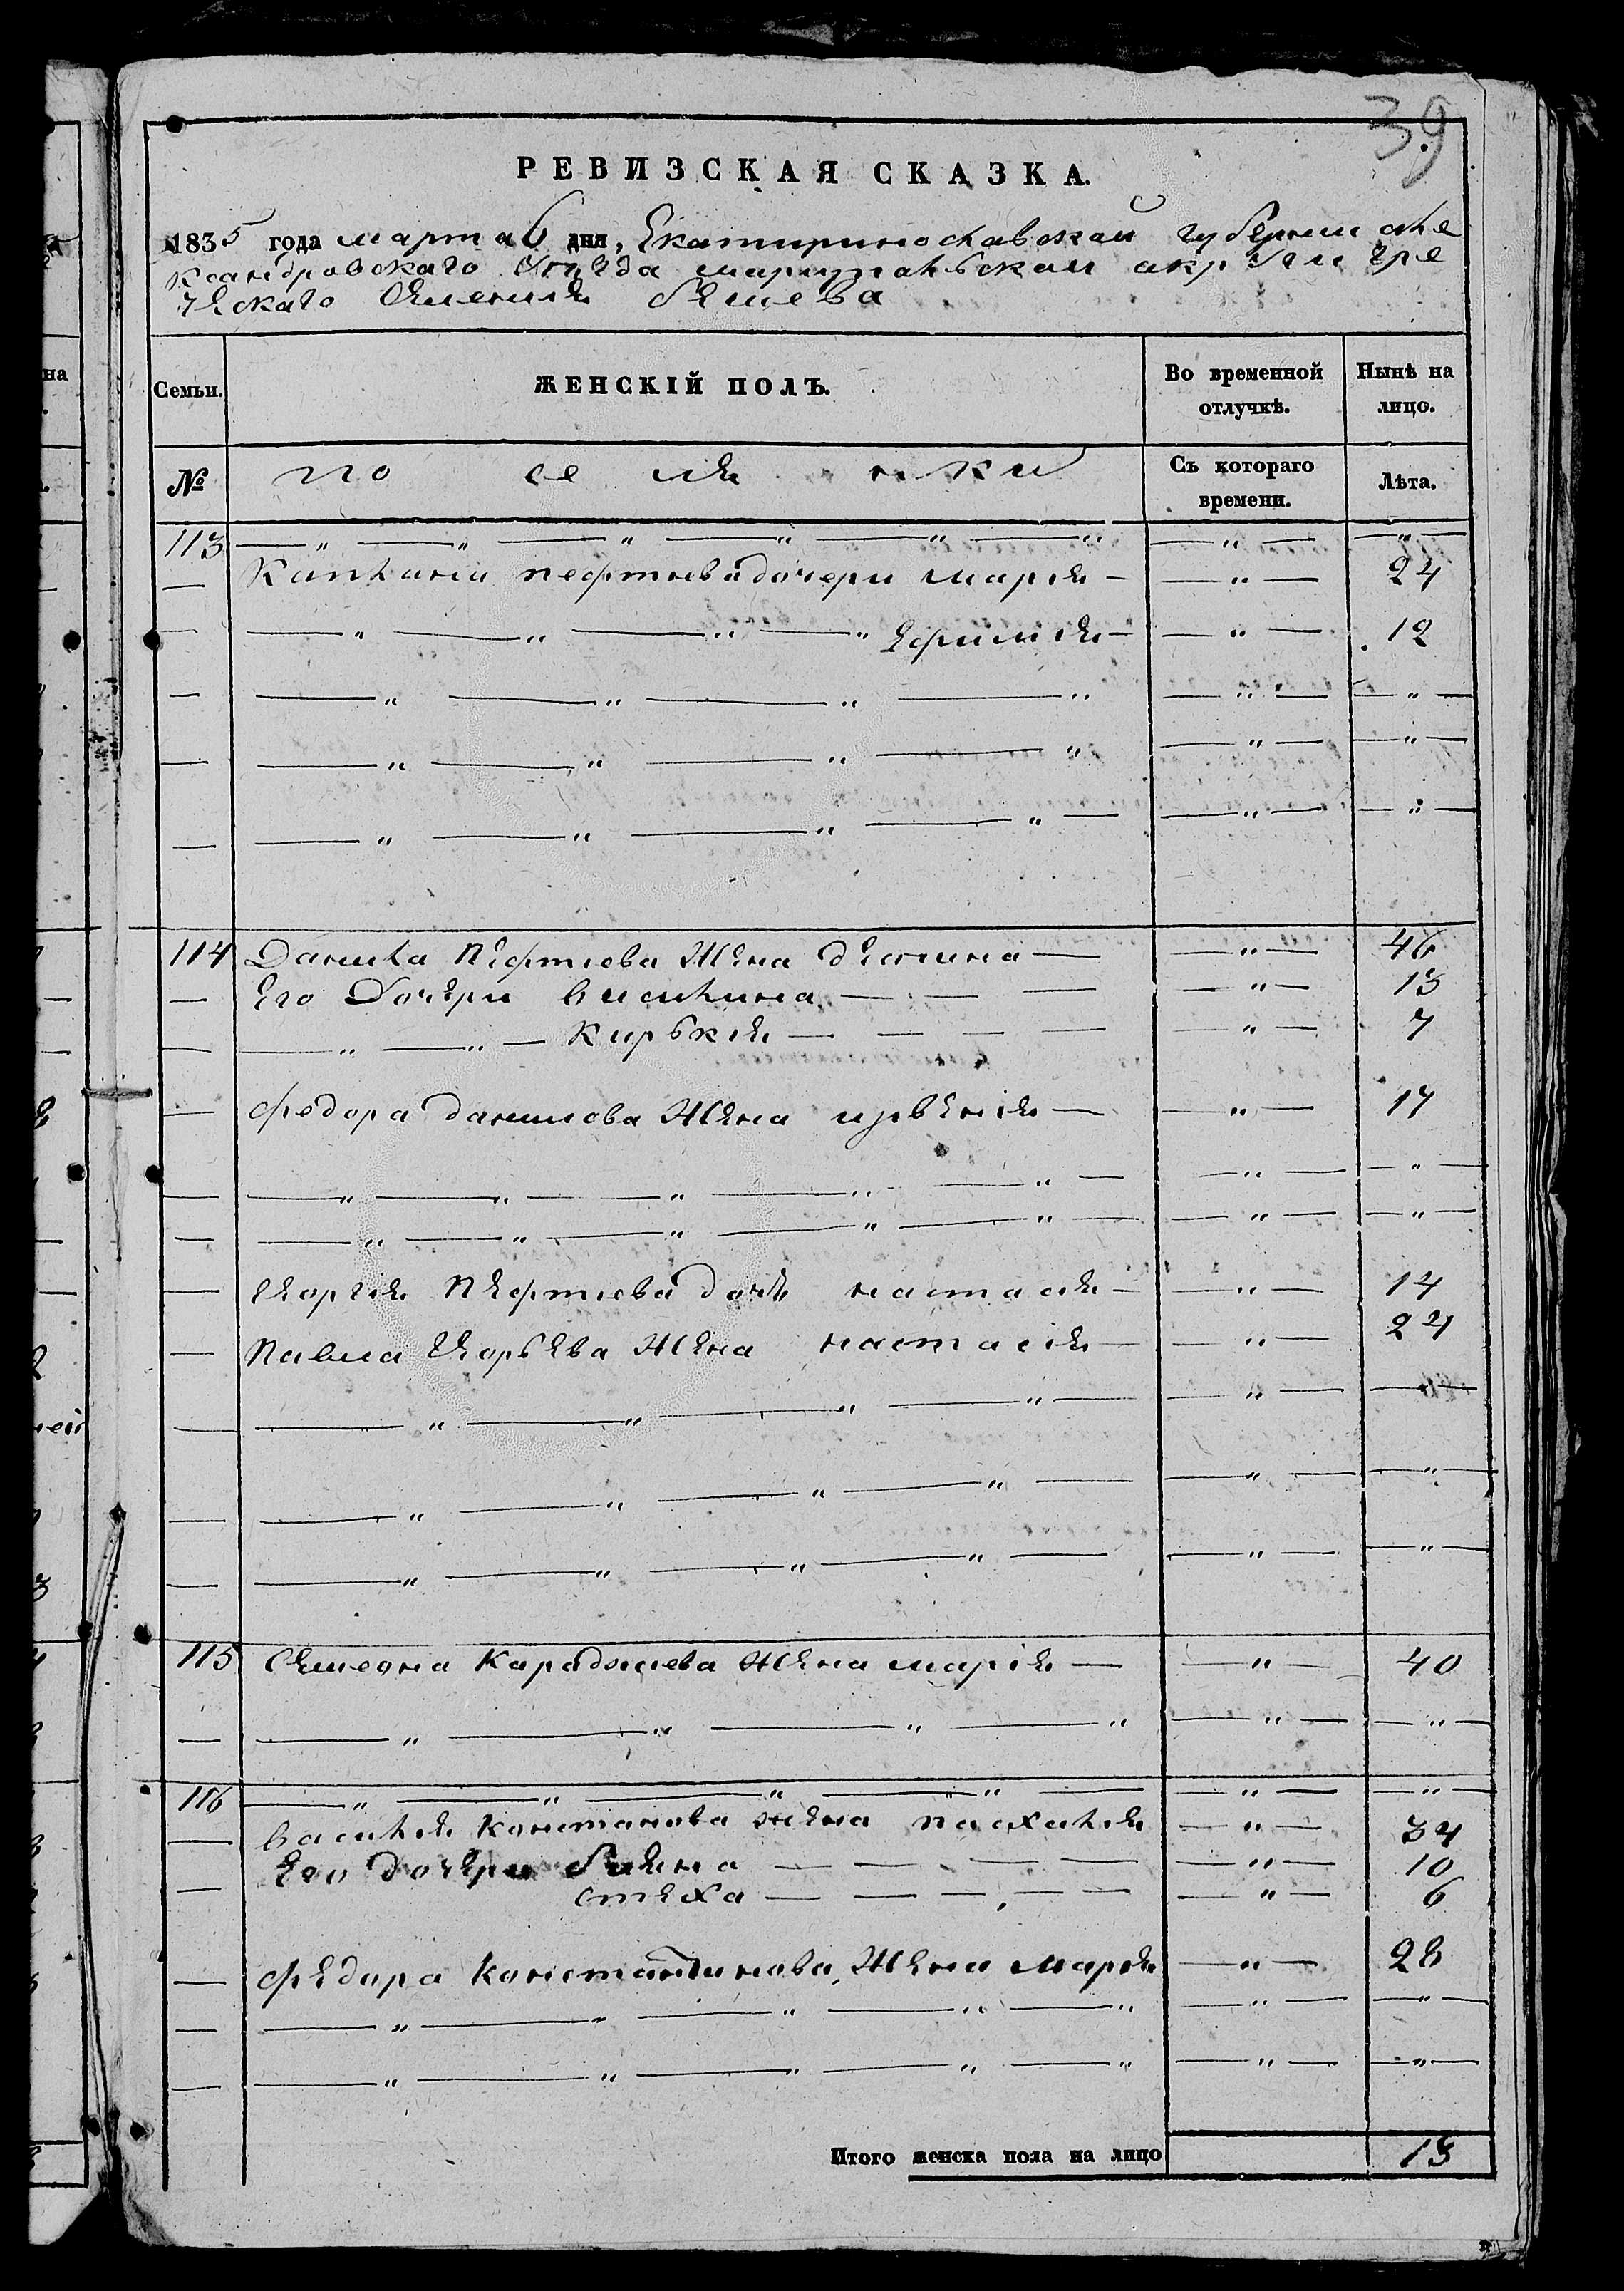 39
РЕВИЗСКАЯ СКАЗКА.
1835 года марта 6 дня, Екатириносlавской губернии але
ксандровскаго Уезда мариупольскаи акруги гре
ческаго Селения бешева
Семьи. ЖЕНСКІЙ ПОЛЪ. Во временной отлучкѣ. Нынѣ на лицо.
№ по се ля нки Съ котораго времени. Лѣта.
113 — " — " — " — " — " — " — " — — " —
— Капlана пефтиева дочери Мария — — " — 24
— — " — " — " — " Ефимия — — " — 12
— — " — " — " — " — " — — " —
— — " — " — " — " — " — — " —
— — " — " — " — " — — " — — " —
114 Данила Пефтиева Жена деспина — — " — 46
— Его Дочери василина — — — — " — 13
— — " — " — Кирькия — — — — — " — 7
— федора данилова Жена извения — — " — 17
— — " — " — — " — " — " — — " — — " —
— — " — " — " — " — " — — " — — " —
— Георгия Пефтиева дочь настасия — — " — 14
— Павла Егорьева Жена настасия — — " — 24
— — " — " — " — " — — " — — " —
— — " — " — " — " — — " — — " —
— — " — " — " — " — — " — — " —
115 Симеона Караджиева Жена мария — — " — 40
— — " — " — " — " — " — — " —
116 — " — " — " — " — — " — — " —
— василия Констанова жена пасхалия — " — 34
Его дочери елена — — — — — " — 10
— стеха — — — — — — " — 6
— федора Константинова Жена Мария — " — 28
— — " — " — " — " — " — " — — — " —
— — " — " — " — " — " — " — — " —
Итого женска пола на лицо 13